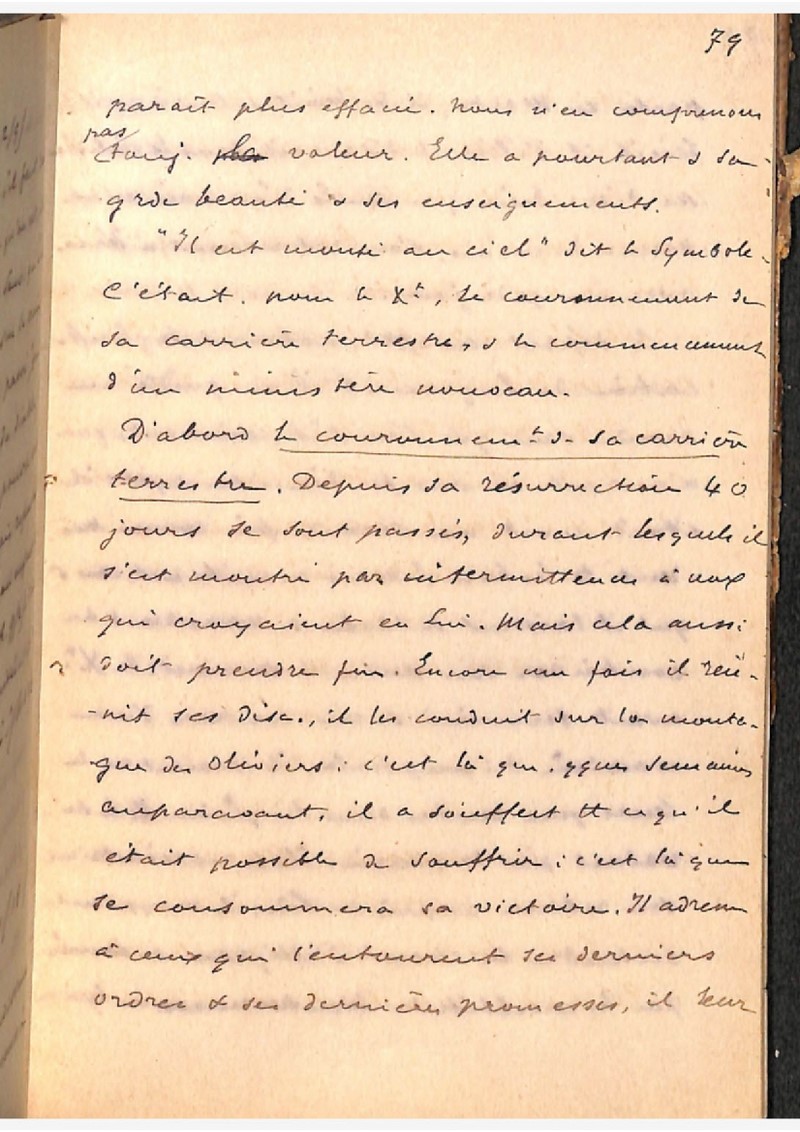 79
paraît plus effacé. Nous n'en comprenons
pas
touj. la valeur. Elle a pourtant & sa
grde beauté & ses enseignements.
"Il est monté au ciel" dit le Symbole.
C'était, pour le Xt, le couronnement de
sa carrière terrestre, & le commencement
d'un ministère nouveau.
D'abord le couronnemt de sa carrière
terrestre. Depuis sa résurrection 40
jours se sont passés, durant lesquels il
s'est montré par intermittence à ceux
qui croyaient en Lui. Mais cela aussi
doit prendre fin. Encore une fois il réu-
-nit ses disc., il les conduit sur la monta-
-gne des Oliviers : c'est là que, qques semaines
auparavant, il a souffert tt ce qu'il
était possible de souffrir ; c'est là que
se consommera sa victoire. Il adresse
à ceux qui l'entourent ses derniers
ordres & ses dernières promesses, il leur